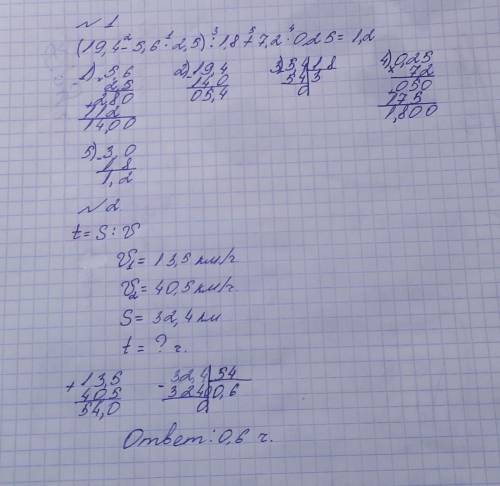 № 1
(19,4-5,6·2,5):1,8-7,2·0,25=1,2
1) 5,6 2) 19,4 3) 5,4 1,8 4) 0,25
2,5 14,0 54 3 72
280 05,4 0 050
112 175
14,00 1,800
5) 3,0
1,8
1,2
№ 2
t = S : V
V₁ = 13,5 км/ч
V₂ = 40,5 км/ч
S = 32,4 км
t = ? ч.
+ 13,5 - 32,4 54
40,5 324 0,6
54,0 0
Ответ: 0,6 ч.